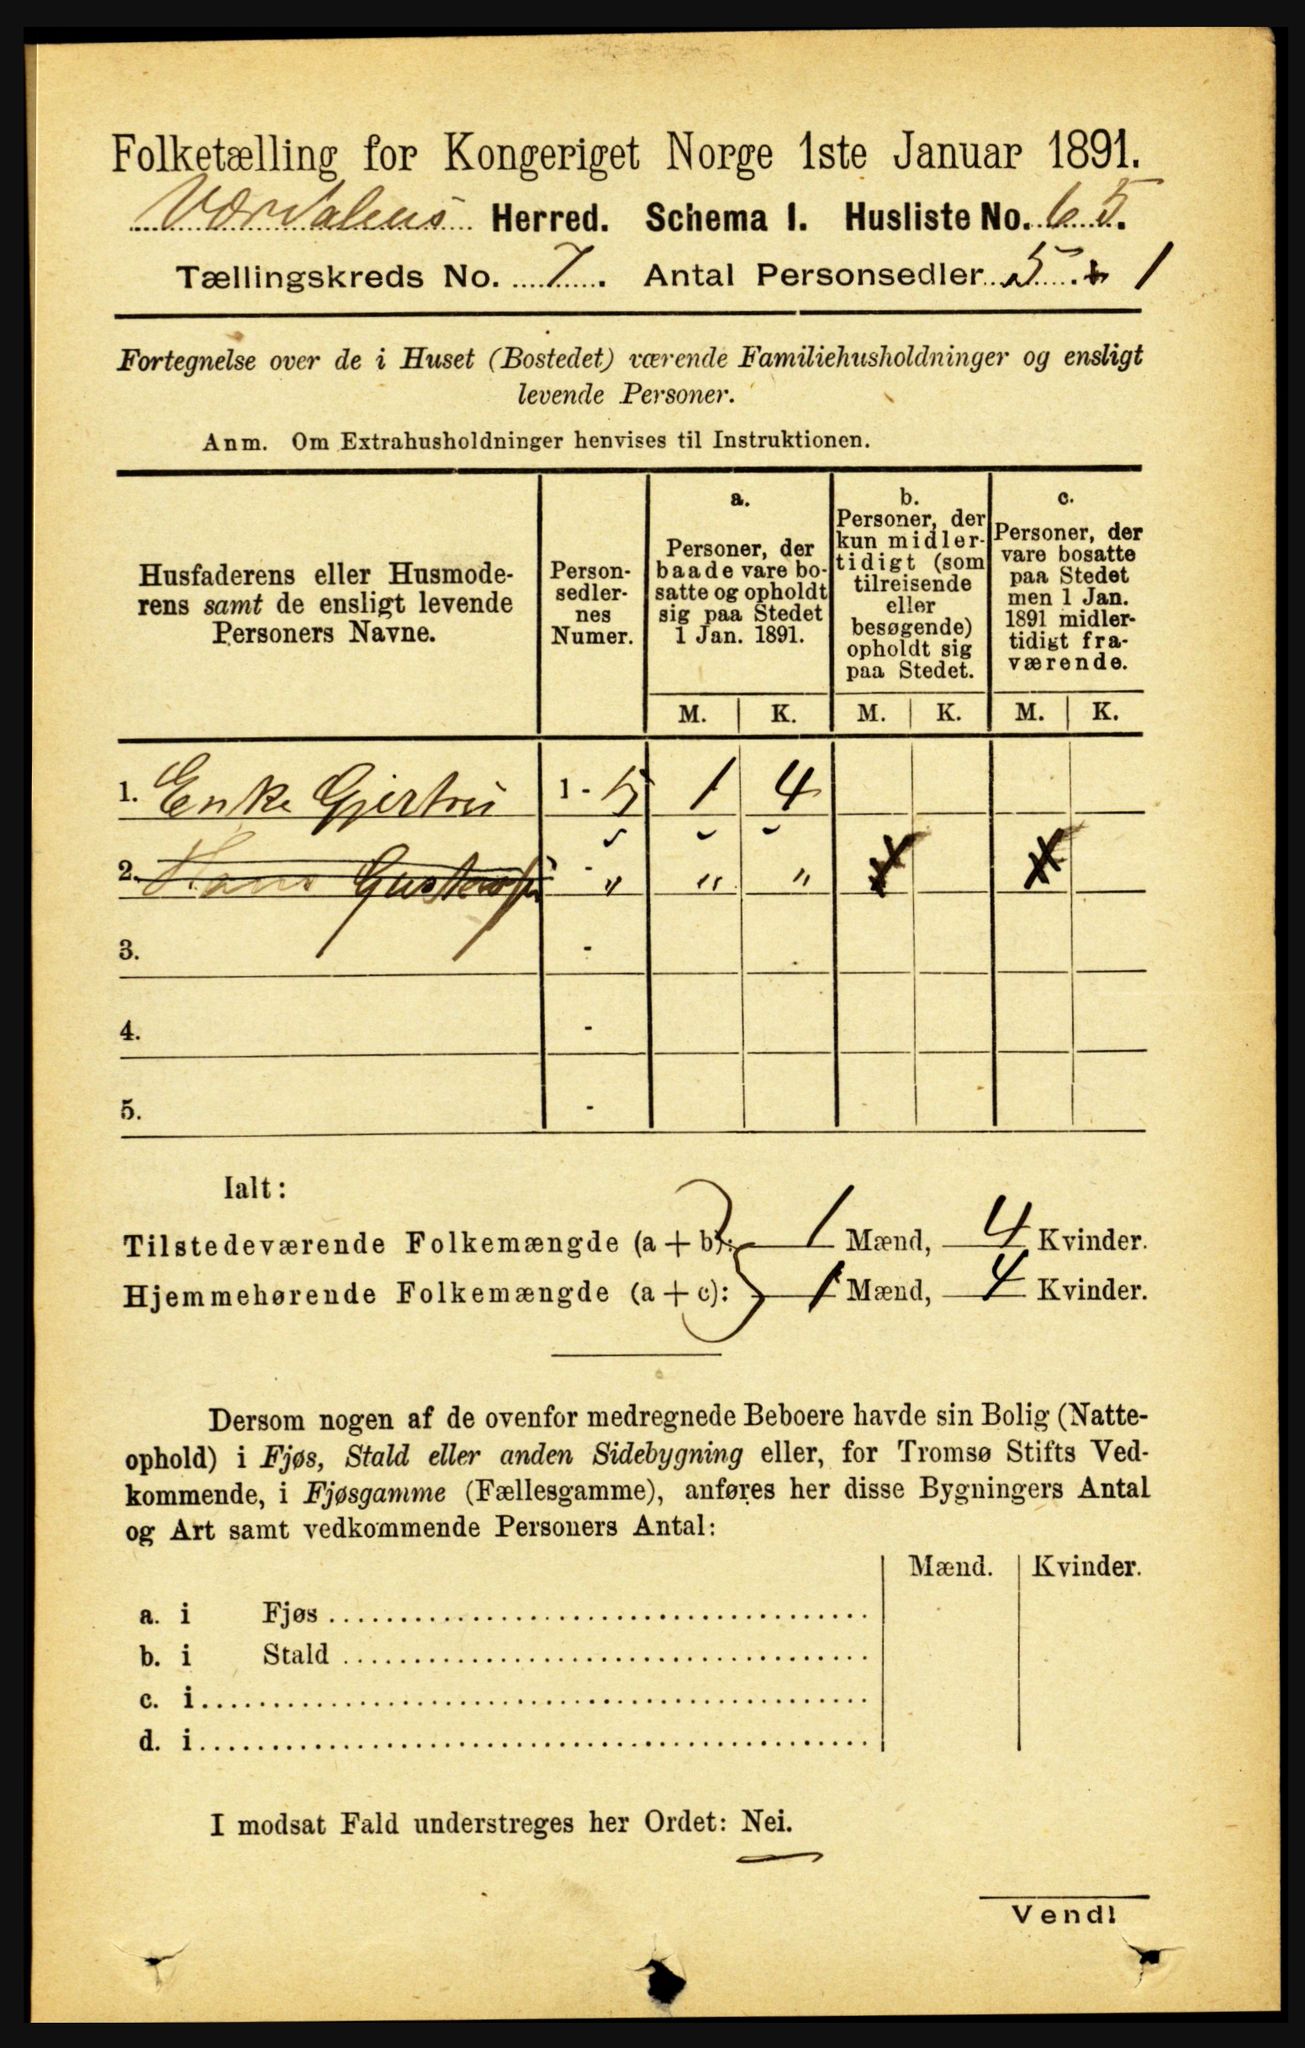 Folketælling for Kongeriget Norge 1ste Januar 1891.
Værdalens Herred. Schema 1. Husliste No. 65.
Tællingskreds No. 7. Antal Personsedler 5 + 1
Fortegnelse over de i Huset (Bostedet) værende Familiehusholdninger og ensligt
levende Personer.
Anm. Om Extrahusholdninger henvises til Instruktionen.
Husfaderens eller Husmode-
rens samt de ensligt levende
Personers Navne.
Person-
sedler-
nes
Numer.
a.
Personer, der
baade vare bo-
satte og opholdt
sig paa Stedet
1 Jan. 1891.
b.
Personer, der
kun midler-
tidigt (som
tilreisende
eller
besøgende)
opholdt sig
paa Stedet.
c.
Personer, der
vare bosatte
paa Stedet
men 1 Jan.
1891 midler-
tidigt fra-
værende.
M. K. M. K. M. K.
1. Enke Gjertru 1 - 5 1 4
2. Hans - " " " x x
3. -
4. -
5. -
Ialt:
Tilstedeværende Folkemængde (a + b): 1 Mænd, 4 Kvinder.
Hjemmehørende Folkemængde (a + c): 1 Mænd, 4 Kvinder.
Dersom nogen af de ovenfor medregnede Beboere havde sin Bolig (Natte-
ophold) i Fjøs, Stald eller anden Sidebygning eller, for Tromsø Stifts Ved-
kommende, i Fjøsgamme (Fællesgamme), anføres her disse Bygningers Antal
og Art samt vedkommende Personers Antal:
Mænd. Kvinder.
a. i Fjøs
b. i Stald
c. i
d. i
I modsat Fald understreges her Ordet: Nei.
Vend!